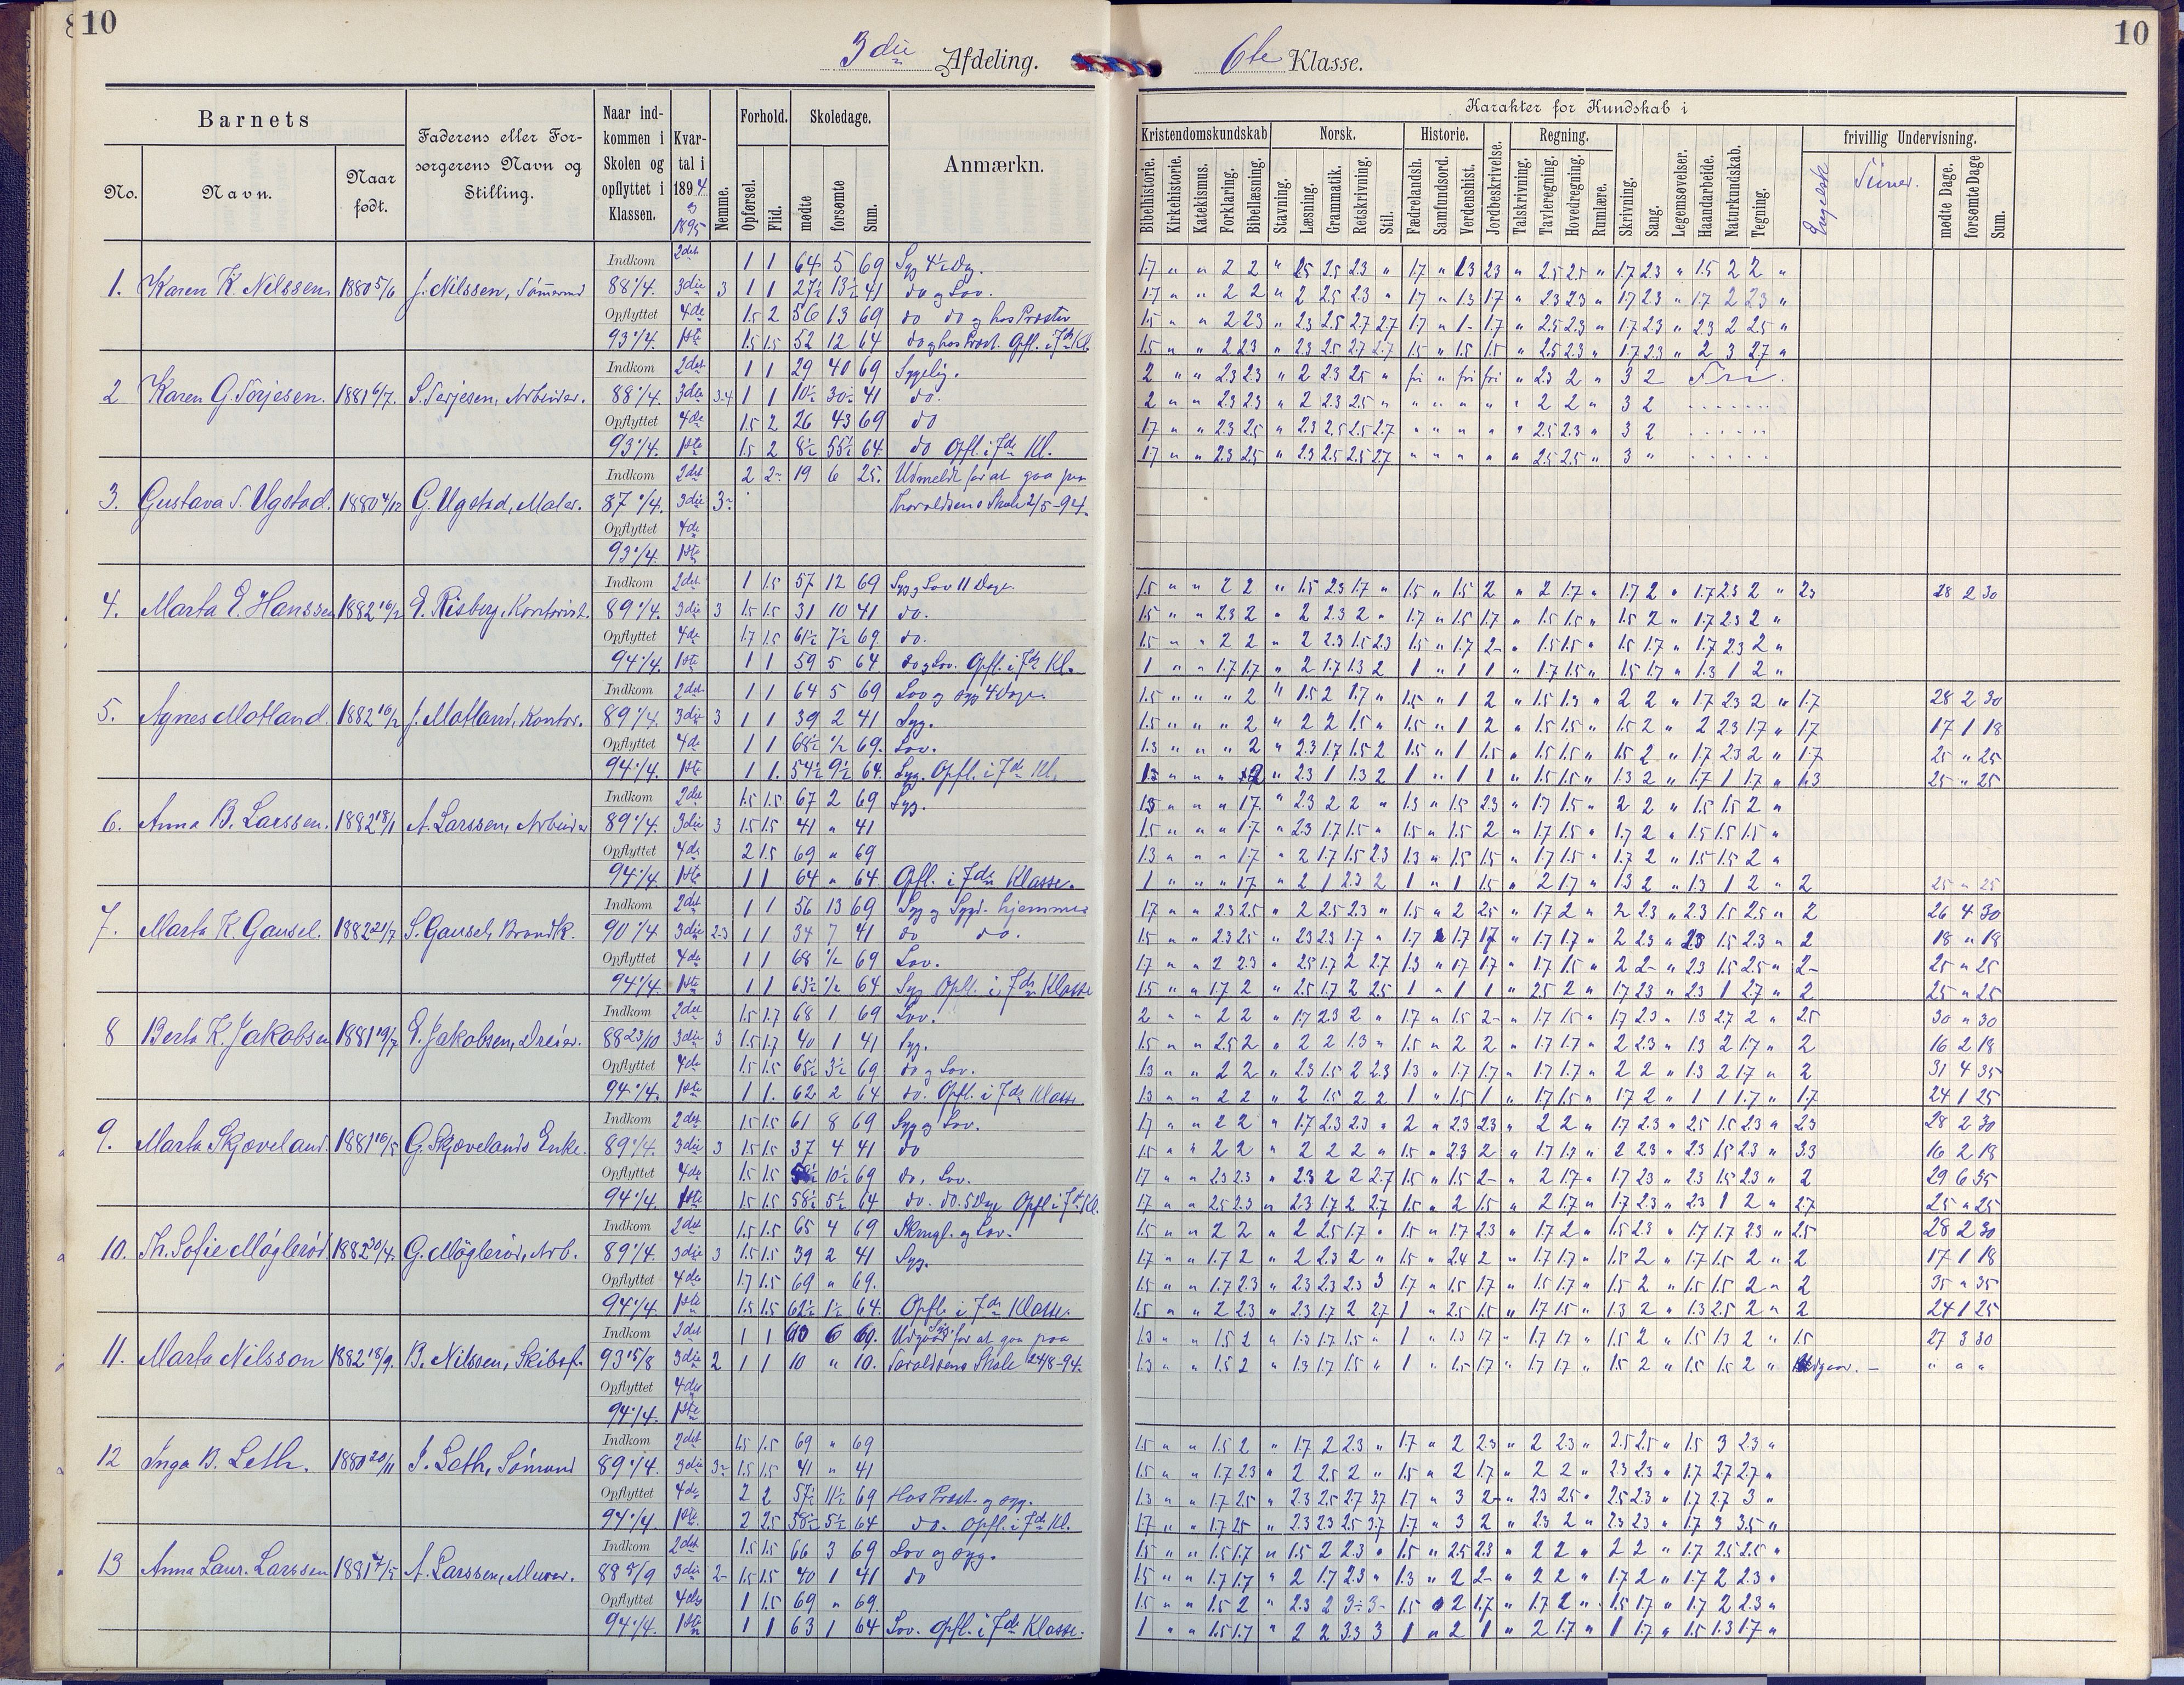 10
3die Afdeling.
Barnets
No.
Navn.
Naar født.
Faderens eller Forsørgerens Navn og Stilling.
Naar indkommen i Skolen og opflyttet i Klassen.
Kvartal i 1894 3 1895
Nemme.
Forhold.
Opførsel.
Flid.
Skoledage.
mødte
forsømte
Sum.
Anmærkn.
Indkom 2det 1 1 64 5 69 Syg 4½ Dg.
1. Karen K. Nilssen 1880 5/6 J. Nilssen, Tømmermd 88 1/4. 3die 3 1 1 27½ 13½ 41 do og Lov.
Opflyttet 4de 1.5 2 56 13 69 do do og hos Præsten
93 1/4. 1ste 1.5 1.5 52 12 64 do og hos Præst. Opfl. i 7de Kl.
Indkom 2det 1 1 29 40 69 Sygelig.
2 Karen G. Torjesen. 1881 6/7. S. Terjesen, Arbeider. 88 1/4. 3die 3-4 1 1 10½ 30½ 41 do.
Opflyttet 4de 1.5 2 26 43 69 do
93 1/4. 1ste 1.5 2 8½ 55½ 64 do Opfl. i 7de Kl.
Indkom 2det 2 2- 19 6 25. Udmeldt for at gaa paa
3. Gustava S. Ugstad. 1880 4/12 G. Ugstad, Maler. 87 1/4. 3die 3- Thoraldsens Skole 2/5-94.
Opflyttet 4de
93 1/4. 1ste
Indkom 2det 1 1.5 57 12 69 Syg, Lov 11 Dage.
4. Marta E. Hanssen 1882 16/2 E. Risberg, Kontorist. 89 1/4. 3die 3 1.5 1.5 31 10 41 do.
Opflyttet 4de 1.7 1.5 61½ 7½ 69 do.
94 1/4. 1ste 1 1 59 5 64 do og Lov. Opfl. i 7de Kl.
Indkom 2det 1 1 64 5 69 Lov og syg 4 Dage.
5. Agnes Motland. 1882 16/2 J. Motland, Kontor. 89 1/4. 3die 3 1 1 39 2 41 Syg.
Opflyttet 4de 1 1 68½ ½ 69. Lov.
94 1/4. 1ste 1 1. 54½ 9½ 64. Syg. Opfl. i 7de Kl.
Indkom 2det 1.5 1.5 67 2 69 Syg.
6. Anna B. Larssen. 1882 18/1 A. Larssen, Arbeider 89 1/4. 3die 3 1.5 1.5 41 " 41
Opflyttet 4de 2 1.5 69 " 69
94 1/4 1ste 1 1 64 " 64 Opfl. i 7de Klasse.
Indkom 2det 1 1 56 13 69 Syg og Sygd. hjemme
7. Marta K. Gausel. 1882 21/7 S. Gausel, Brandk. 90 1/4 3die 2-3 1 1 34 7 41 do do.
Opflyttet 4de 1 1 68 ½ 69 Lov.
94 1/4. 1ste 1 1 63½ ½ 64 Syg Opfl. i 7de Klasse
Indkom 2det 1.5 1.7 68 1 69 Lov.
8 Berta K. Jakobsen 1881 19/7 E. Jakobsen, Dreier. 88 23/10 3die 3 1.5 1.7 40 1 41 Syg.
Opflyttet 4de 1.5 1.5 65½ 3½ 69 do og Lov.
94 1/4. 1ste 1 1. 62 2 64 do. Opfl. i 7de Klasse
Indkom 2det 1.5 1.5 61 8 69 Syg og Lov.
9. Marta Skjæveland. 1881 16/5 G. Skjævelands Enke. 89 1/4. 3die 3 1.5 1.5 37 4 41 do
Opflyttet 4de 1.5 1.5 58½ 10½ 69 do, Lov.
94 1/4. 1ste 1.5 1.5 58½ 5½ 64 do. do. 5 Dage Opfl. i 7de Kl.
Indkom 2det 1.5 1.5 65 4 69 Skrugl. og Lov.
10. Th. Sofie Møglerød. 1882 30/4. G. Møglerød, Arb. 89 1/4. 3die 3 1.5 1.5 39 2 41 Syg.
Opflyttet 4de 1.7 1.5 69 " 69.
94 1/4. 1ste 1.5 1.5 62½ 1½ 64. Opfl. i 7de Klasse.
Indkom 2det 1 1 63 6 69. for at gaa paa
11. Marta Nilsson 1882 18/9. B. Nilssen, Skibsf. 93 15/8 3die 2 1 1 10 " 10. Toraldsens Skole 24/8-94.
Opflyttet 4de
94 1/4. 1ste
Indkom 2det 1.5 1.5 69 " 69
12 Inga B. Leth. 1880 20/11 J. Leth, Sømand 89 1/4. 3die 3- 1.5 1.5 41 " 41
Opflyttet 4de 2 2 57½ 11½ 69 Hos Præst. og syg.
94 1/4 1ste. 2 2.5 58½ 5½ 64 do. Opfl. i 7de Kl.
Indkom 2det 1.5 1.5 66 3 69 Lov og syg.
13 Anna Laur. Larssen 1881 7/5 A. Larssen, Murer. 88 5/9 3die 2- 1.5 1.5 40 1 41 do
Opflyttet 4de 1 1.5 69 " 69.
94 1/4. 1ste 1 1 63 1 64 Lov. Opfl. i 7de Klasse.
10
6te Klasse.
Karakter for Kundskab i
Kristendomskundskab
Norsk.
Historie.
Regning.
frivillig Undervisning.
Bibelhistorie.
Kirkehistorie.
Katekismus.
Forklaring.
Bibellæsning.
Stavning.
Læsning.
Grammatik.
Retskrivning.
Stil.
Fædrelandsh.
Samfundsord.
Verdenshist.
Jordbeskrivelse.
Talskrivning.
Tavleregning.
Hovedregning.
Rumlære.
Skrivning.
Sang.
Legemsøvelser.
Haandarbeide.
Naturkundskab.
Tegning.
Engelsk
Timer.
mødte Dage.
forsømte Dage
Sum.
1.7 " " 2 2 " 2.5 2.5 2.3 " 1.7 " 1.3 2.3 " 2.5 2.5 " 1.7 2.3 " 1.5 2 2 "
1.7 " " 2 2 " 2 2.5 2.3 " 1.7 " 1.3 1.7 " 2.3 2.3 " 1.7 2.3 " 1.7 2 2.3 "
1.5 " " 2 2.3 " 2.3 2.5 2.7 2.7 1.7 " 1- 1.7 " 2.5 2.3 " 1.7 2.3 " 2.3 2 2.5 "
1.5 " " 2 2.3 " 2.3 2.5 2.7 2.7 1.5 " 1.5 1.5 " 2.5 2.3 " 1.7 2.3 " 2 3 2.7 "
2 " " 2.3 2.3 " 2 2.3 2.5 " fri " fri fri " 2.3 2 " 3 2 Fri.
2 " " 2.3 2.3 " 2 2.3 2.5 " " " " " " 2 2 " 3 2
1.7 " " 2.3 2.5 " 2.3 2.5 2.5 2.7 " " " " " 2.5 2.3 " 3 2
1.7 " " 2.3 2.5 " 2.3 2.5 2.5 2.7 " " " " " 2.5 2.5 " 3 "
1.5 " " 2 2 " 1.5 2.3 1.7 " 1.5 " 1.5 2 " 2 1.7 " 1.7 2 " 1.7 2.3 2 " 2.3 28 2 30
1.5 " " 2.3 2 " 2 2.3 2 " 1.7 " 1.5 1.7 " 1.5 1.5 " 1.5 2 " 1.7 2.3 2 "
1.5 " " 2 2 " 2 2.3 1.5 2.3 1.5 " 1.7 2- " 1.5 1.5 " 1.5 1.7 " 1.7 2.3 2 "
1 " " 1.7 1.7 " 2 1.7 1.3 2 1 " 1 1 " 1.7 1.5 " 1.5 1.7 " 1.3 1 2 "
1.5 " " " 2 " 1.5 2 1.7 " 1.5 " 1 2 " 1.5 1.3 " 2 2 " 1.7 2.3 2 " 1.7 28 2 30
1.5 " " " 2 " 2 2 1.5 " 1.5 " 1 2 " 1.5 1.5 " 1.5 2 " 2 2.3 1.7 " 1.7 17 1 18
1.3 " " " 2 " 2.3 1.7 1.5 2 1.5 " 1 1.5 " 1.5 1.5 " 1.5 2 " 1.7 2.3 2 " 1.7 25 " 25
1.3 " " " 2 " 2.3 1 1.3 2 1 " 1 1 " 1.5 1.5 " 1.3 2 " 1.7 1 1.7 " 1.3 25 " 25
1.5 " " " 1.7 " 2.3 2 2 " 1.3 " 1.5 2.3 " 1.7 1.5 " 2 2 " 1.5 1.5 2 "
1.5 " " " 1.7 " 2.3 1.7 1.5 " 1.5 " 1.5 2 " 1.7 1.5 " 1.7 2 " 1.5 1.5 1.5 "
1.3 " " " 1.7 " 2 1.7 1.5 2.3 1.3 " 1.5 1.5 " 1.7 1.5 " 1.7 2 " 1.5 1.5 2 "
1 " " " 1.7 " 2 1 2.3 2 1 " 1 1.5 " 2 1.7 " 1.3 2 " 1.3 1 2 " 2 25 " 25
1.7 " " 2.3 2.5 " 2 2.5 2.3 " 1.5 " 2 2.5 " 1.7 2 " 2 2.3 " 2.3 1.5 2.5 " 2 26 4 30
1.5 " " 2.3 2.5 " 2.3 2.3 1.7 " 1.7 " 1.7 1.7 " 1.7 1.7 " 2 2.3 " 2.3 1.5 2.3 " 2 18 " 18
1.7 " " 2 2.3 " 2.5 1.7 2 2.7 1.3 " 1.7 1.7 " 1.7 1.5 " 2 2- " 2.3 1.5 2.5 " 2- 25 " 25
1.5 " " 1.7 2 " 2.5 1.7 2 2.5 1 " 1 1 " 2.5 2 " 1.7 2.3 " 2.3 1 2.7 " 2 25 " 25
2 " " 2 2 " 1.7 2.3 2 " 1.7 " 1.5 2- " 1.7 1.5 " 1.7 2.3 " 1.3 2.7 2 " 2.5 30 " 30
1.5 " " 2.5 2 " 2 2 1.3 " 1.5 " 2 2 " 1.7 1.7 " 2 2.3 " 1.3 2 1.7 " 2 16 2 18
1.3 " " 2 2 " 2.3 1.5 2 2.3 1.3 " 1.7 1.7 " 1.7 1.7 " 2 2 " 1.3 2 1.7 " 2 31 4 35
1.3 " " 2 2 " 2 1.5 2 2 1 " 1.5 1 " 1.7 1.5 " 1.7 2 " 1 1 1.7 " 1.7 24 1 25
1.7 " " 2 2 " 1.7 2.3 2.3 " 2 " 2.3 2.3 " 2 2 " 1.7 2.3 " 2.5 1.5 2.3 " 2.3 28 2 30
1.5 " " 2 2 " 2 2 2 " 1.5 " 2.3 2 " 1.7 1.7 " 2 2.3 " 2.3 1.5 2.3 " 3.3 16 2 18
1.7 " " 2.3 2.3 " 2.3 2 2 2.7 1.5 " 1.5 2- " 2 1.7 " 1.7 2.3 " 2.3 1.5 2.3 " 2 29 6 35
1.7 " " 2.5 2.3 " 2.3 1.7 2 2.7 1.5 " 2 1.5 " 2 1.7 " 1.7 2.3 " 2.3 1 2 " 2.7 25 " 25
1.5 " " 2 2 " 2 2.5 1.7 " 1.5 " 1.7 2.3 " 1.7 2 " 1.5 2.3 " 1.7 1.7 2.3 " 2.5 28 2 30
1.7 " " 1.7 2 " 2 2.3 2 " 1.5 " 2.4 2 " 1.7 1.7 " 1.5 2 " 1.7 1.5 2 " 2 17 1 18
1.5 " " 1.7 2.3 " 2.3 2.3 2.3 3 1.7 " 1.5 1.7 " 1.5 1.7 " 1.5 2 " 1.5 1.5 2 " 2 35 " 35
1.5 " " 2 2.3 " 2.3 1.7 2 2.7 1 " 2.5 1.5 " 1.7 1.5 " 1.3 2 " 1.3 2.5 2 " 2 24 1 25
1.3 " " 1.5 2 " 1.3 1.7 1.5 " 1 " 1.3 1.7 " 1.7 1.7 " 1.5 2 " 1.5 1.3 2 " 1.5 27 3 30
1.3 " " 1.5 2 " 1.3 1.7 1.5 " 1 " 1.5 1.7 " 1.7 1.7 " 1.5 2 " 1.5 1.5 2 " " " "
1.5 " " 1.5 2 " 1.7 2 2.3 " 1.7 " 2 2.3 " 2 2.3 " 2.5 2.5 " 1.5 3 2.3 "
1.5 " " 1.7 2.3 " 2 2.5 2 " 1.5 " 2 1.7 " 2 2 " 2.3 2.3 " 1.7 2.7 2.7 "
1.3 " " 1.7 2.5 " 2.3 2.5 2.7 3.7 1.7 " 3 2- " 2.3 2.5 " 2.5 2.3 " 1.7 2.7 3 "
1.7 " " 1.7 2.5 " 2.3 2.3 2.5 3.7 1.7 " 3 2 " 2.3 2 " 2.3 2.3 " 1.7 3 3.5 "
1.5 " " 1.5 1.7 " 1.5 2 2.3 " 1.5 " 2.5 2.3 " 2 2 " 2 2 " 1.7 2.5 2.5 "
1.5 " " 1.7 1.7 " 2 1.7 2.3 " 1.3 " 2 2- " 2 2 " 1.7 2 " 1.7 2 2.3 "
1.5 " " 1.5 2 " 2.3 2 3- 3- 1.5 " 2 1.7 " 1.7 2 " 1.5 1.7 " 1.7 2 2.3 "
1 " " 1.5 1.7 " 2 2 3.3 3 1 " 2 1 " 2 1.7 " 1 1.7 " 1.5 1.3 1.7 "